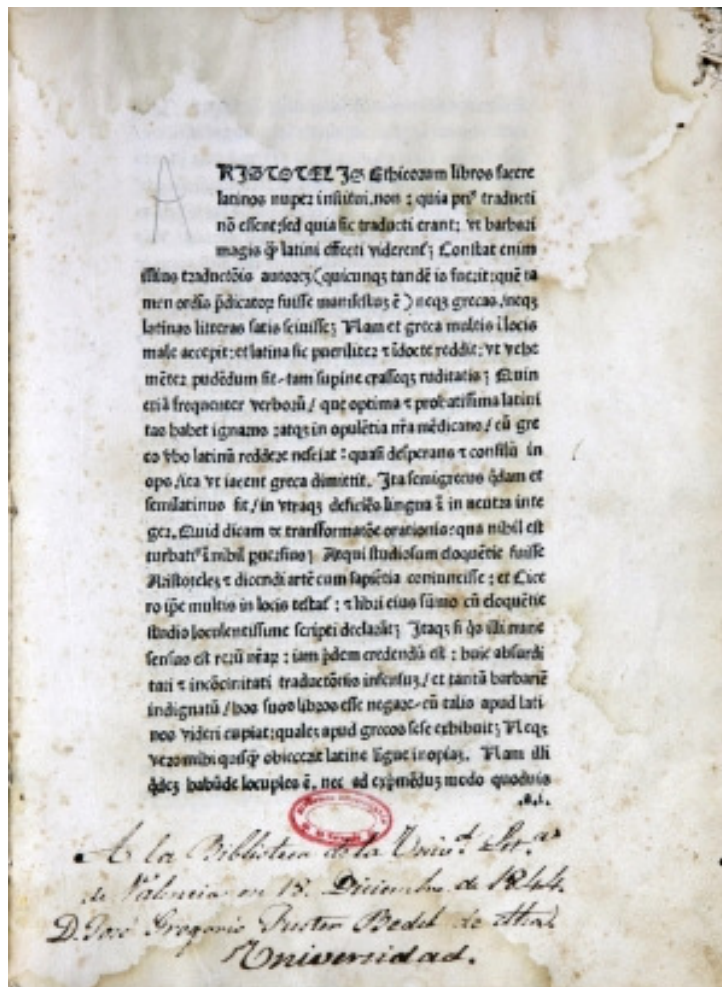 A
RISTOTELIS Ethicorum libros facere
latinos nuper institui, non : quia priꝰ traducti
nō essent: sed quia sic traducti erant: vt barbari
magis q̄ latini effecti viderent᷑; Constat enim
illius traductōis autorē (quicunqꝫ tandē is fuerit: quē ta
men ordīs p̄dicatoꝝ fuisse manifestus ē) neqꝫ grecas, neqꝫ
latinas litteras satis sciuisse; Nam et greca multis ī locis
male accepit: et latina sic pueriliter ⁊ īdocte reddit: vt vehe
mēter pudēdum sit tam supine crasseqꝫ ruditatis; Quin
etiā frequenter verborū / que optima ⁊ probatissima latini
tas habet ignarus: atqꝫ in opulētia nr̄a mēdicans / cū gre
co v̄bo latinū reddere nesciat: quasi desperans ⁊ consilii in
ops / ita vt iacent greca dimittit. Ita semigrecus q̄dam et
semilatinus fit / in vtraqꝫ deficiēs lingua ī in neutra inte
ger. Quid dicam de transformatōe orationis: qua nihil est
turbatiꝰ nihil puersius; Atqui studiosum eloquētie fuisse
Aristotelē ⁊ dicendi artē cum sapiētia coniunxisse: et Cice
ro ip̄e multis in locis testat᷑: ⁊ libri eius sūmo cū eloquētie
studio luculentissime scripti declarāt; Itaqꝫ si q̄s illi nunc
sensus est rerū nr̄aꝝ: iam p̄dem credendū est: huic absurdi
tati ⁊ incōcinitati traductōnis infensum / et tantā barbariē
indignatū / hos suos libros esse negare cū talis apud lati
nos videri cupiat: quales apud grecos sese exhibuit; Neqꝫ
vero mihi quisq̄ obiecerit latine līgue inopiaꝫ. Nam illi
q̄deꝫ habūde locuples ē. nec ad exp̄mēduꝫ modo quoduis
.a.i.
A la Biblioteca de la Univ.d Lit.a
de Valencia en 18. Diciembre de 1844.
D. José Gregorio Fuster Bedel de dha.
Universidad.